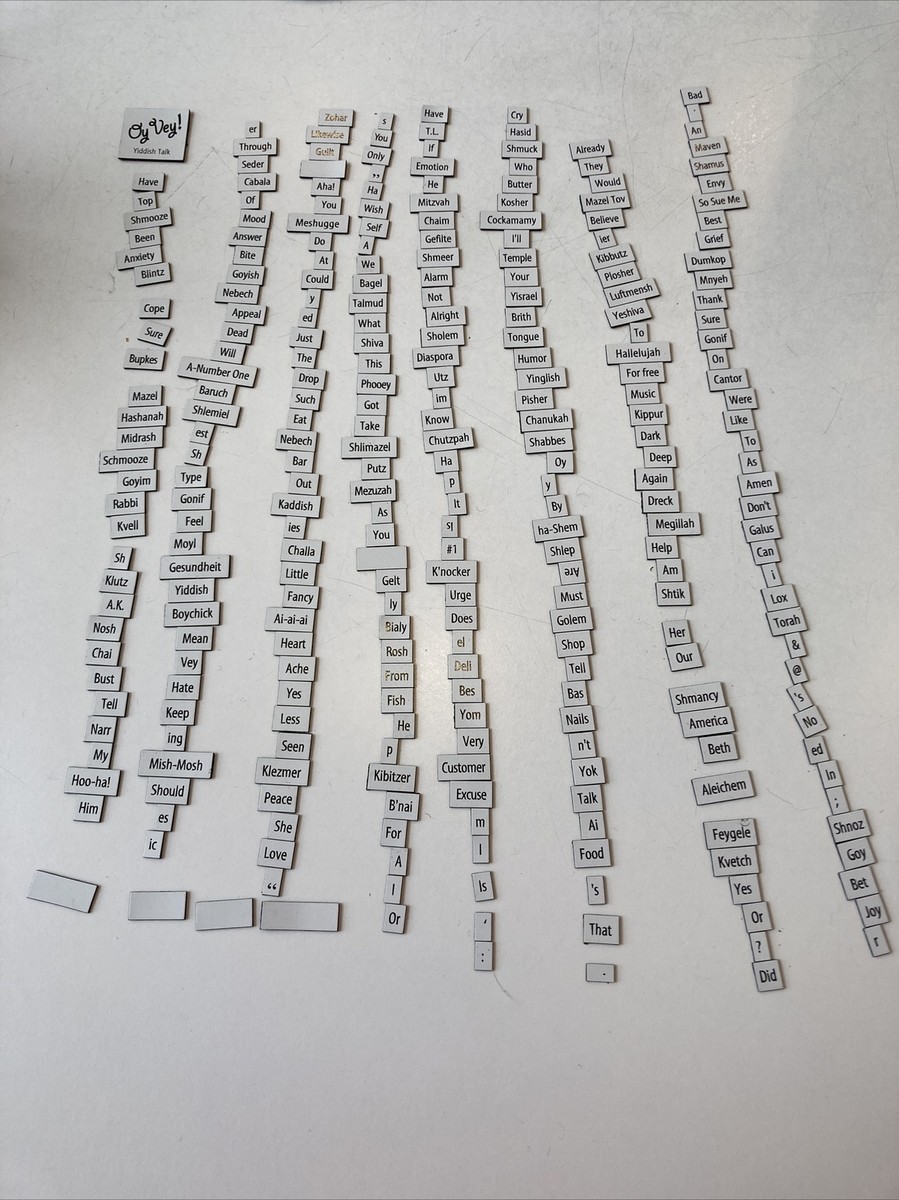 Oy Vey!
Yiddish Talk
Have
Top
Shmooze
Been
Anxiety
Blintz
Cope
Sure
Bupkes
Mazel
Hashanah
Midrash
Schmooze
Goyim
Rabbi
Kvell
Sh
Klutz
A.K.
Nosh
Chai
Bust
Tell
Narr
My
Hoo-ha!
Him
er
Through
Seder
Cabala
Of
Mood
Answer
Bite
Goyish
Nebech
Appeal
Dead
Will
A-Number One
Baruch
Shlemiel
est
Sh
Type
Gonif
Feel
Moyl
Gesundheit
Yiddish
Boychick
Mean
Vey
Hate
Keep
ing
Mish-Mosh
Should
es
ic
Zohar
Likewise
Guilt
Aha!
You
Meshugge
Do
At
Could
y
ed
Just
The
Drop
Such
Eat
Nebech
Bar
Out
Kaddish
ies
Challa
Little
Fancy
Ai-ai-ai
Heart
Ache
Yes
Less
Seen
Klezmer
Peace
She
Love
“
s
You
Only
”
Ha
Wish
Self
A
We
Bagel
Talmud
What
Shiva
This
Phooey
Got
Take
Shlimazel
Putz
Mezuzah
As
You
Gelt
ly
Bialy
Rosh
From
Fish
He
p
Kibitzer
B'nai
For
A
I
Or
Have
T.L.
If
Emotion
He
Mitzvah
Chaim
Gefilte
Shmeer
Alarm
Not
Alright
Sholem
Diaspora
Utz
im
Know
Chutzpah
Ha
p
It
Is
#1
K'nocker
Urge
Does
el
Deli
Bes
Yom
Very
Customer
Excuse
m
I
Is
'
:
Cry
Hasid
Shmuck
Who
Butter
Kosher
Cockamamy
I'll
Temple
Your
Yisrael
Brith
Tongue
Humor
Yinglish
Pisher
Chanukah
Shabbes
Oy
y
By
ha-Shem
Shlep
Are
Must
Golem
Shop
Tell
Bas
Nails
n't
Yok
Talk
Ai
Food
's
That
.
Already
They
Would
Mazel Tov
Believe
ier
Kibbutz
Plosher
Luftmensh
Yeshiva
To
Hallelujah
For free
Music
Kippur
Dark
Deep
Again
Dreck
Megillah
Help
Am
Shtik
Her
Our
Shmancy
America
Beth
Aleichem
Feygele
Kvetch
Yes
Or
?
Did
Bad
An
Maven
Shamus
Envy
So Sue Me
Best
Grief
Dumkop
Mnyeh
Thank
Sure
Gonif
On
Cantor
Were
Like
To
As
Amen
Don't
Galus
Can
i
Lox
Torah
&
@
's
No
ed
In
;
Shnoz
Goy
Bet
Joy
r